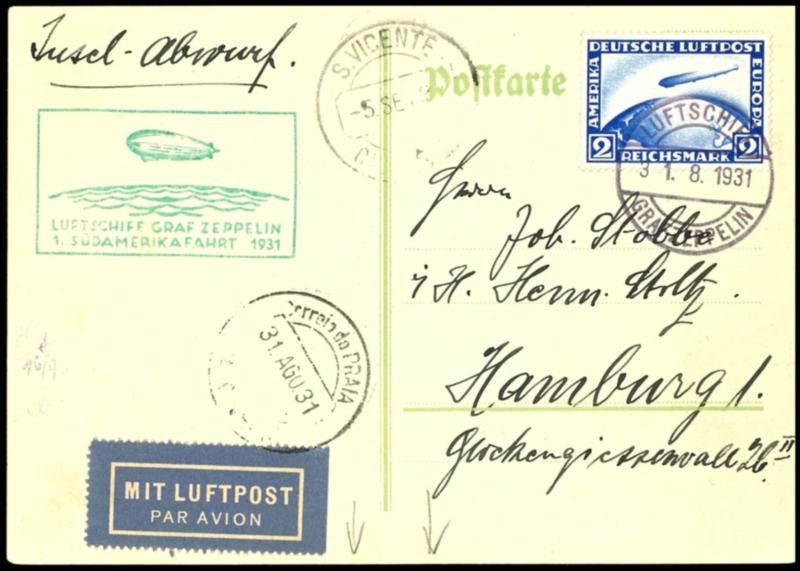 Insel-Abwurf.
S. VICENTE
-5. SE
Postkarte
DEUTSCHE LUFTPOST
AMERIKA
EUROPA
2 REICHSMARK 2
LUFTSCHIFF
31.8.1931
GRAF ZEPPELIN
LUFTSCHIFF GRAF ZEPPELIN
1. SÜDAMERIKAFAHRT 1931
Herrn
Joh. Stobbe
i/H. Herm. Stoltz.
Hamburg 1.
Glockengiesserwall 26 II
Correio da PRAIA
31. AGO. 31
MIT LUFTPOST
PAR AVION